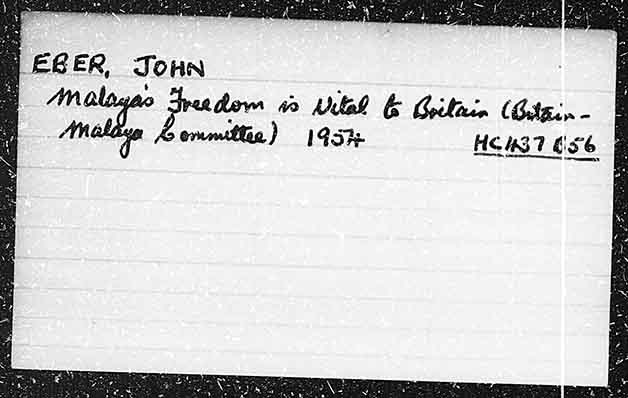 EBER, JOHN
Malaya's Freedom is Vital to Britain (Britain-
Malaya Committee) 1954 HC437 B56